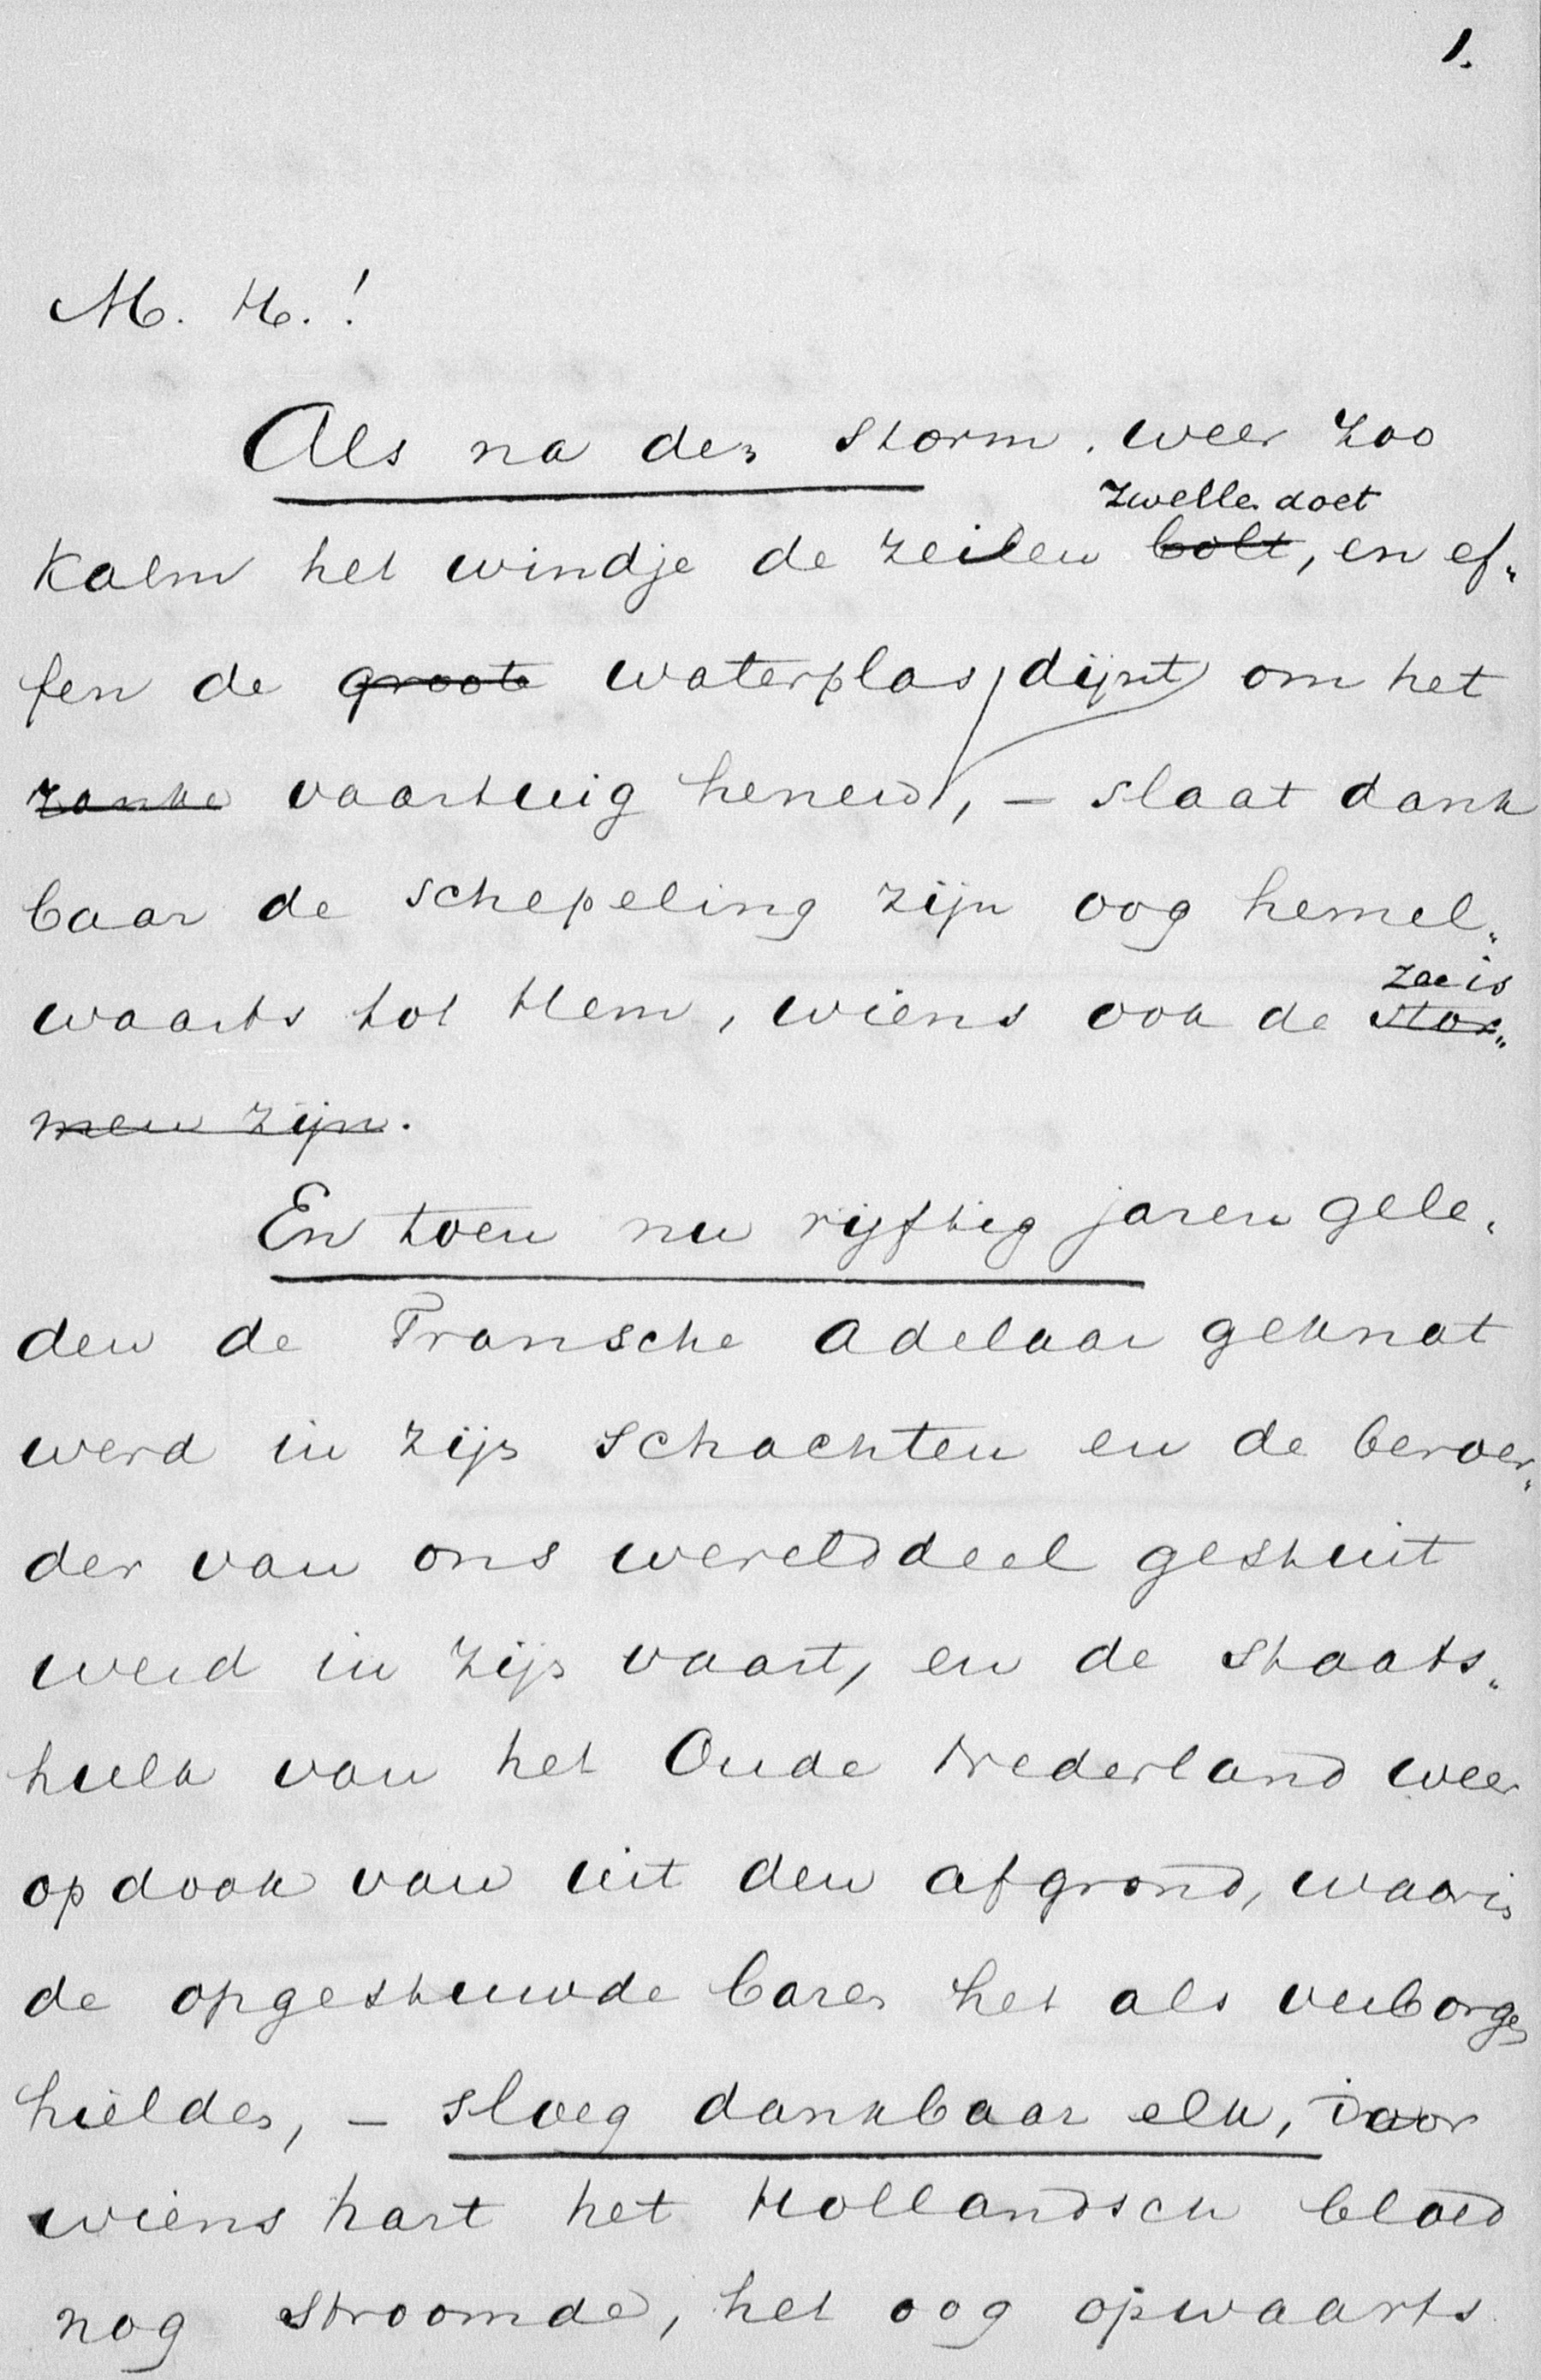 1.
M. H.!
Als na den storm. weer zoo
zwellen doet
kalm het windje de zeilen bolt, en ef-
fen de groote waterplas, dijnt om het
ranke vaartuig henen, – slaat dank
baar de schepeling zijn oog hemel-
zee is
waarts tot Hem, wiens ook de stor-
men zijn.
En toen nu vijftig jaren gele-
den de Fransche adelaar geknot
werd in zijn schachten en de beroer-
der van ons werelddeel gestuit
werd in zijn vaart, en de staats-
hulk van het Oude Nederland weer
opdook van uit den afgrond, waarin
de opgestuwde baren het als verborgen
hielden, – sloeg dankbaar elk, door
wiens hart het Hollandsch bloed
nog stroomde, het oog opwaarts